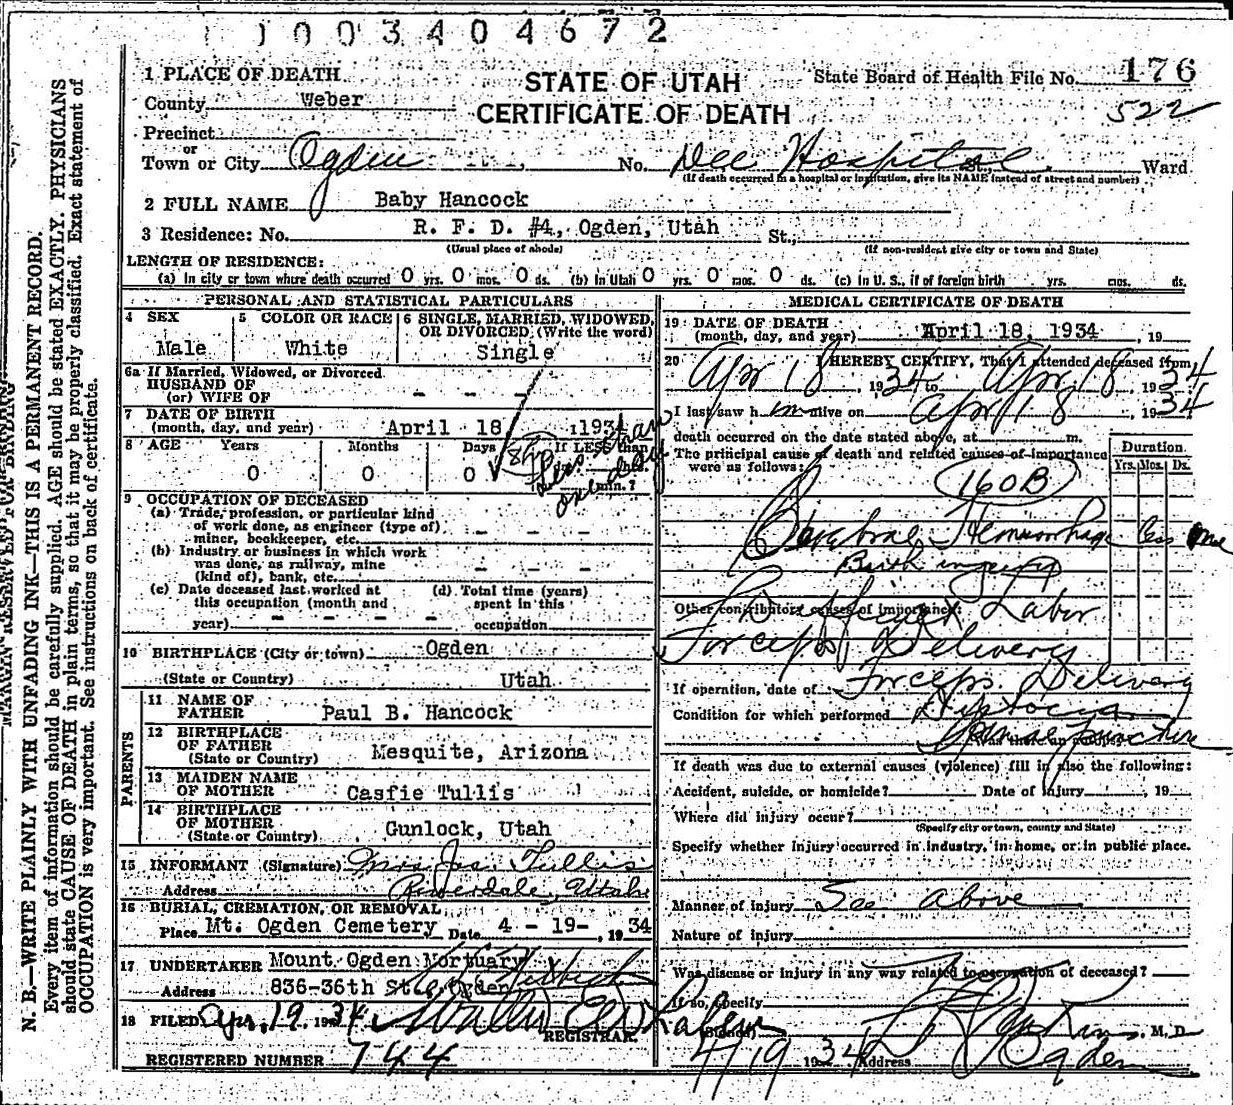 1003404672
1 PLACE OF DEATH
STATE OF UTAH
CERTIFICATE OF DEATH
State Board of Health File No. 176
522
County Weber
Precinct
or
Town or City Ogden No. Dee Hospital St., Ward
(If death occurred in a hospital or institution, give its NAME instead of street and number)
2 FULL NAME Baby Hancock
3 Residence: No. R. F. D. #4, Ogden, Utah St.,
(Usual place of abode) (If non-resident give city or town and State)
LENGTH OF RESIDENCE:
(a) In city or town where death occurred 0 yrs. 0 mos. 0 ds. (b) In Utah 0 yrs. 0 mos. 0 ds. (c) In U. S., if of foreign birth yrs. mos. ds.
PERSONAL AND STATISTICAL PARTICULARS
4 SEX
Male
5 COLOR OR RACE
White
6 SINGLE, MARRIED, WIDOWED,
OR DIVORCED (Write the word)
Single
6a If Married, Widowed, or Divorced
HUSBAND OF
(or) WIFE OF - - -
7 DATE OF BIRTH
(month, day, and year) April 18 1934
8 AGE Years Months Days If LESS than
0 0 0 hrs.
min.?
less than
one day
9 OCCUPATION OF DECEASED
(a) Trade, profession, or particular kind
of work done, as engineer (type of)
miner, bookkeeper, etc. - - -
(b) Industry or business in which work
was done, as railway, mine
(kind of), bank, etc. - - -
(c) Date deceased last worked at
this occupation (month and
year) - - - - -
(d) Total time (years)
spent in this
occupation
10 BIRTHPLACE (City or town) Ogden
(State or Country) Utah
PARENTS
11 NAME OF
FATHER Paul B. Hancock
12 BIRTHPLACE
OF FATHER
(State or Country) Mesquite, Arizona
13 MAIDEN NAME
OF MOTHER Casfie Tullis
14 BIRTHPLACE
OF MOTHER
(State or Country) Gunlock, Utah
15 INFORMANT (Signature) Mrs Jas Tullis
Address Riverdale, Utah
16 BURIAL, CREMATION, OR REMOVAL
Place Mt. Ogden Cemetery Date 4 - 19 -, 1934
17 UNDERTAKER Mount Ogden Mortuary
Address 836-36th St., Ogden
18 FILED Apr. 19, 1934
REGISTRAR.
REGISTERED NUMBER 744
MEDICAL CERTIFICATE OF DEATH
19 DATE OF DEATH
(month, day, and year) April 18, 1934, 19
20 I HEREBY CERTIFY, That I attended deceased from
Apr 18, 1934 to Apr 18, 1934
I last saw him alive on Apr 18, 1934
death occurred on the date stated above, at m.
The principal cause of death and related causes of importance
were as follows:
Duration
Yrs. Mos. Ds.
160B
Cerebral Hemorrhage less one
Birth injury
Other contributory causes of importance:
Difficult Labor
Forceps Delivery
If operation, date of Forceps Delivery
Condition for which performed Dystocia
Was there an autopsy? Spinal puncture
If death was due to external causes (violence) fill in also the following:
Accident, suicide, or homicide? Date of injury, 19
Where did injury occur?
(Specify city or town, county and State)
Specify whether injury occurred in industry, in home, or in public place.
Manner of injury See Above
Nature of injury
Was disease or injury in any way related to occupation of deceased?
If so, specify
(Signed) M. D.
4/19 1934 Address Ogden
MARGIN RESERVED FOR BINDING
N. B.—WRITE PLAINLY WITH UNFADING INK—THIS IS A PERMANENT RECORD.
Every item of information should be carefully supplied. AGE should be stated EXACTLY. PHYSICIANS
should state CAUSE OF DEATH in plain terms, so that it may be properly classified. Exact statement of
OCCUPATION is very important. See instructions on back of certificate.